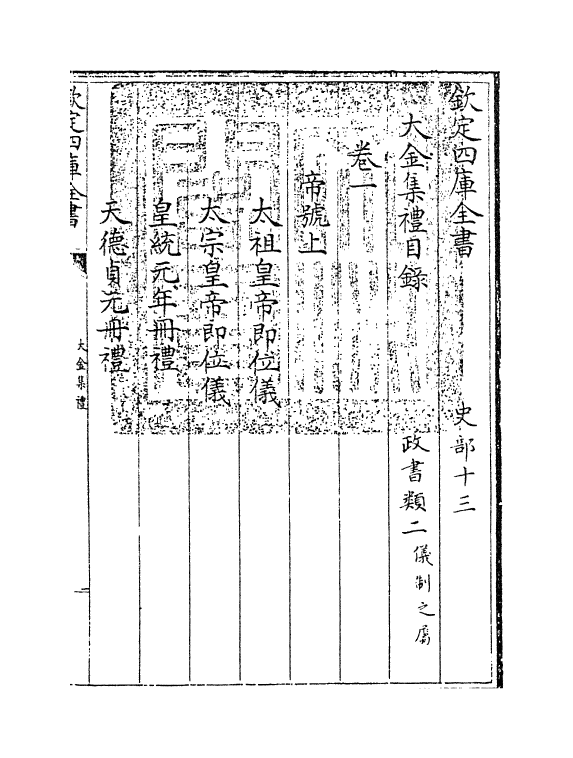 欽定四庫全書 史部十三
大金集禮目錄 政書類二儀制之屬
卷一
帝號上
太祖皇帝即位儀
太宗皇帝即位儀
皇統元年冊禮
天德貞元冊禮
欽定四庫全書
大金集禮